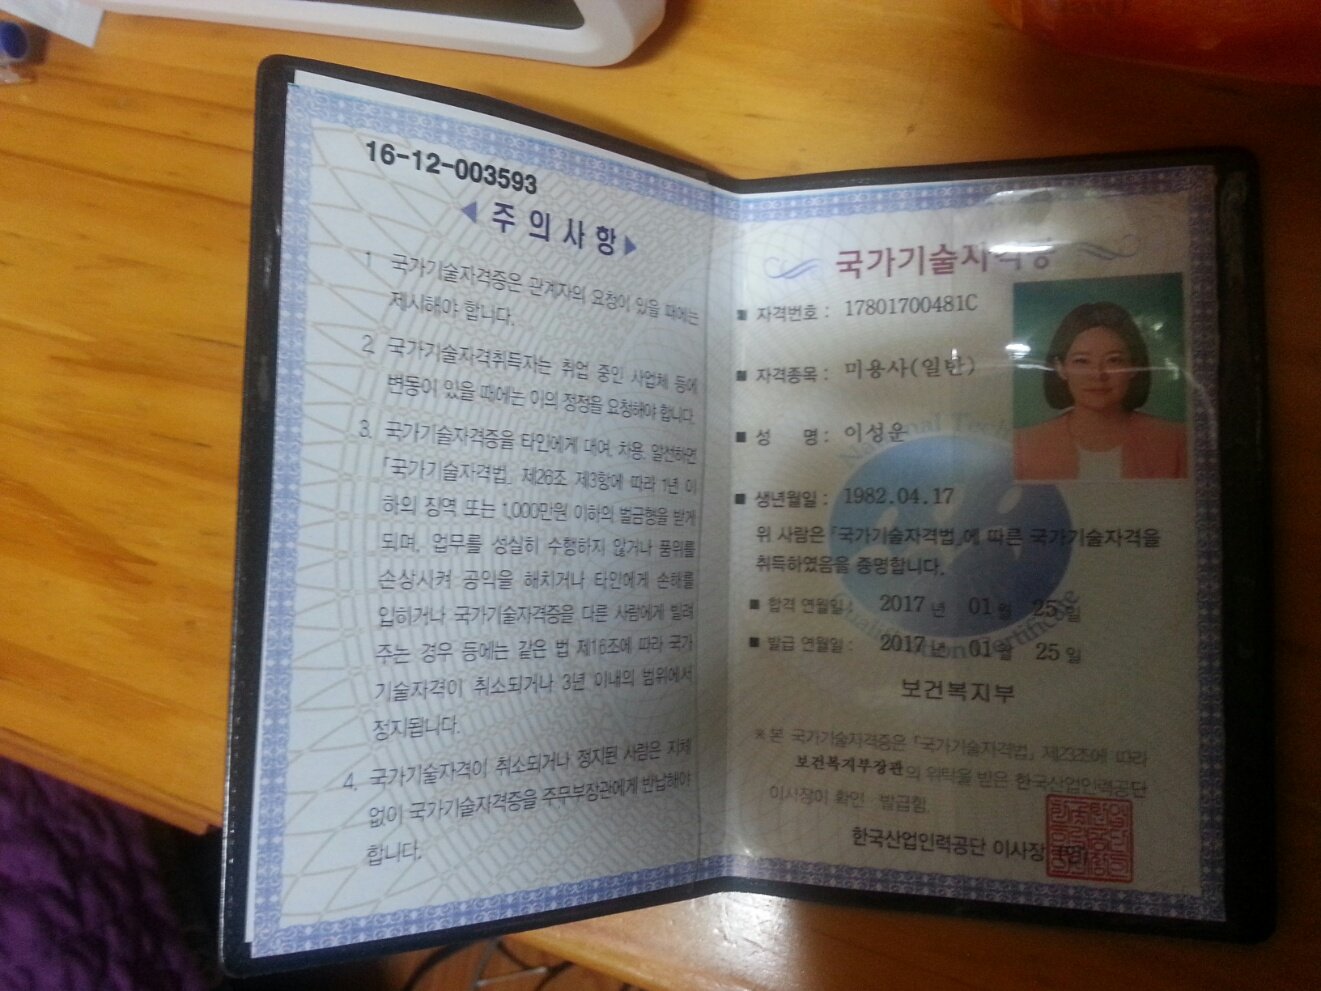 16-12-003593
◀ 주 의 사 항 ▶
1. 국가기술자격증은 관계자의 요청이 있을 때에는
제시해야 합니다.
2. 국가기술자격취득자는 취업 중인 사업체 등에
변동이 있을 때에는 이의 정정을 요청해야 합니다.
3. 국가기술자격증을 타인에게 대여, 차용, 알선하면
「국가기술자격법」 제26조 제3항에 따라 1년 이
하의 징역 또는 1,000만원 이하의 벌금형을 받게
되며, 업무를 성실히 수행하지 않거나 품위를
손상시켜 공익을 해치거나 타인에게 손해를
입히거나 국가기술자격증을 다른 사람에게 빌려
주는 경우 등에는 같은 법 제16조에 따라 국가
기술자격이 취소되거나 3년 이내의 범위에서
정지됩니다.
4. 국가기술자격이 취소되거나 정지된 사람은 지체
없이 국가기술자격증을 주무부장관에게 반납해야
합니다.
국가기술자격증
■ 자격번호 : 17801700481C
■ 자격종목 : 미용사(일반)
■ 성 명 : 이성운
■ 생년월일 : 1982.04.17
위 사람은 「국가기술자격법」에 따른 국가기술자격을
취득하였음을 증명합니다.
■ 합격 연월일 : 2017 년 01 월 25 일
■ 발급 연월일 : 2017 년 01 월 25 일
보건복지부
※ 본 국가기술자격증은 「국가기술자격법」 제23조에 따라
보건복지부장관의 위탁을 받은 한국산업인력공단
이사장이 확인·발급함.
한국산업인력공단 이사장 (인)